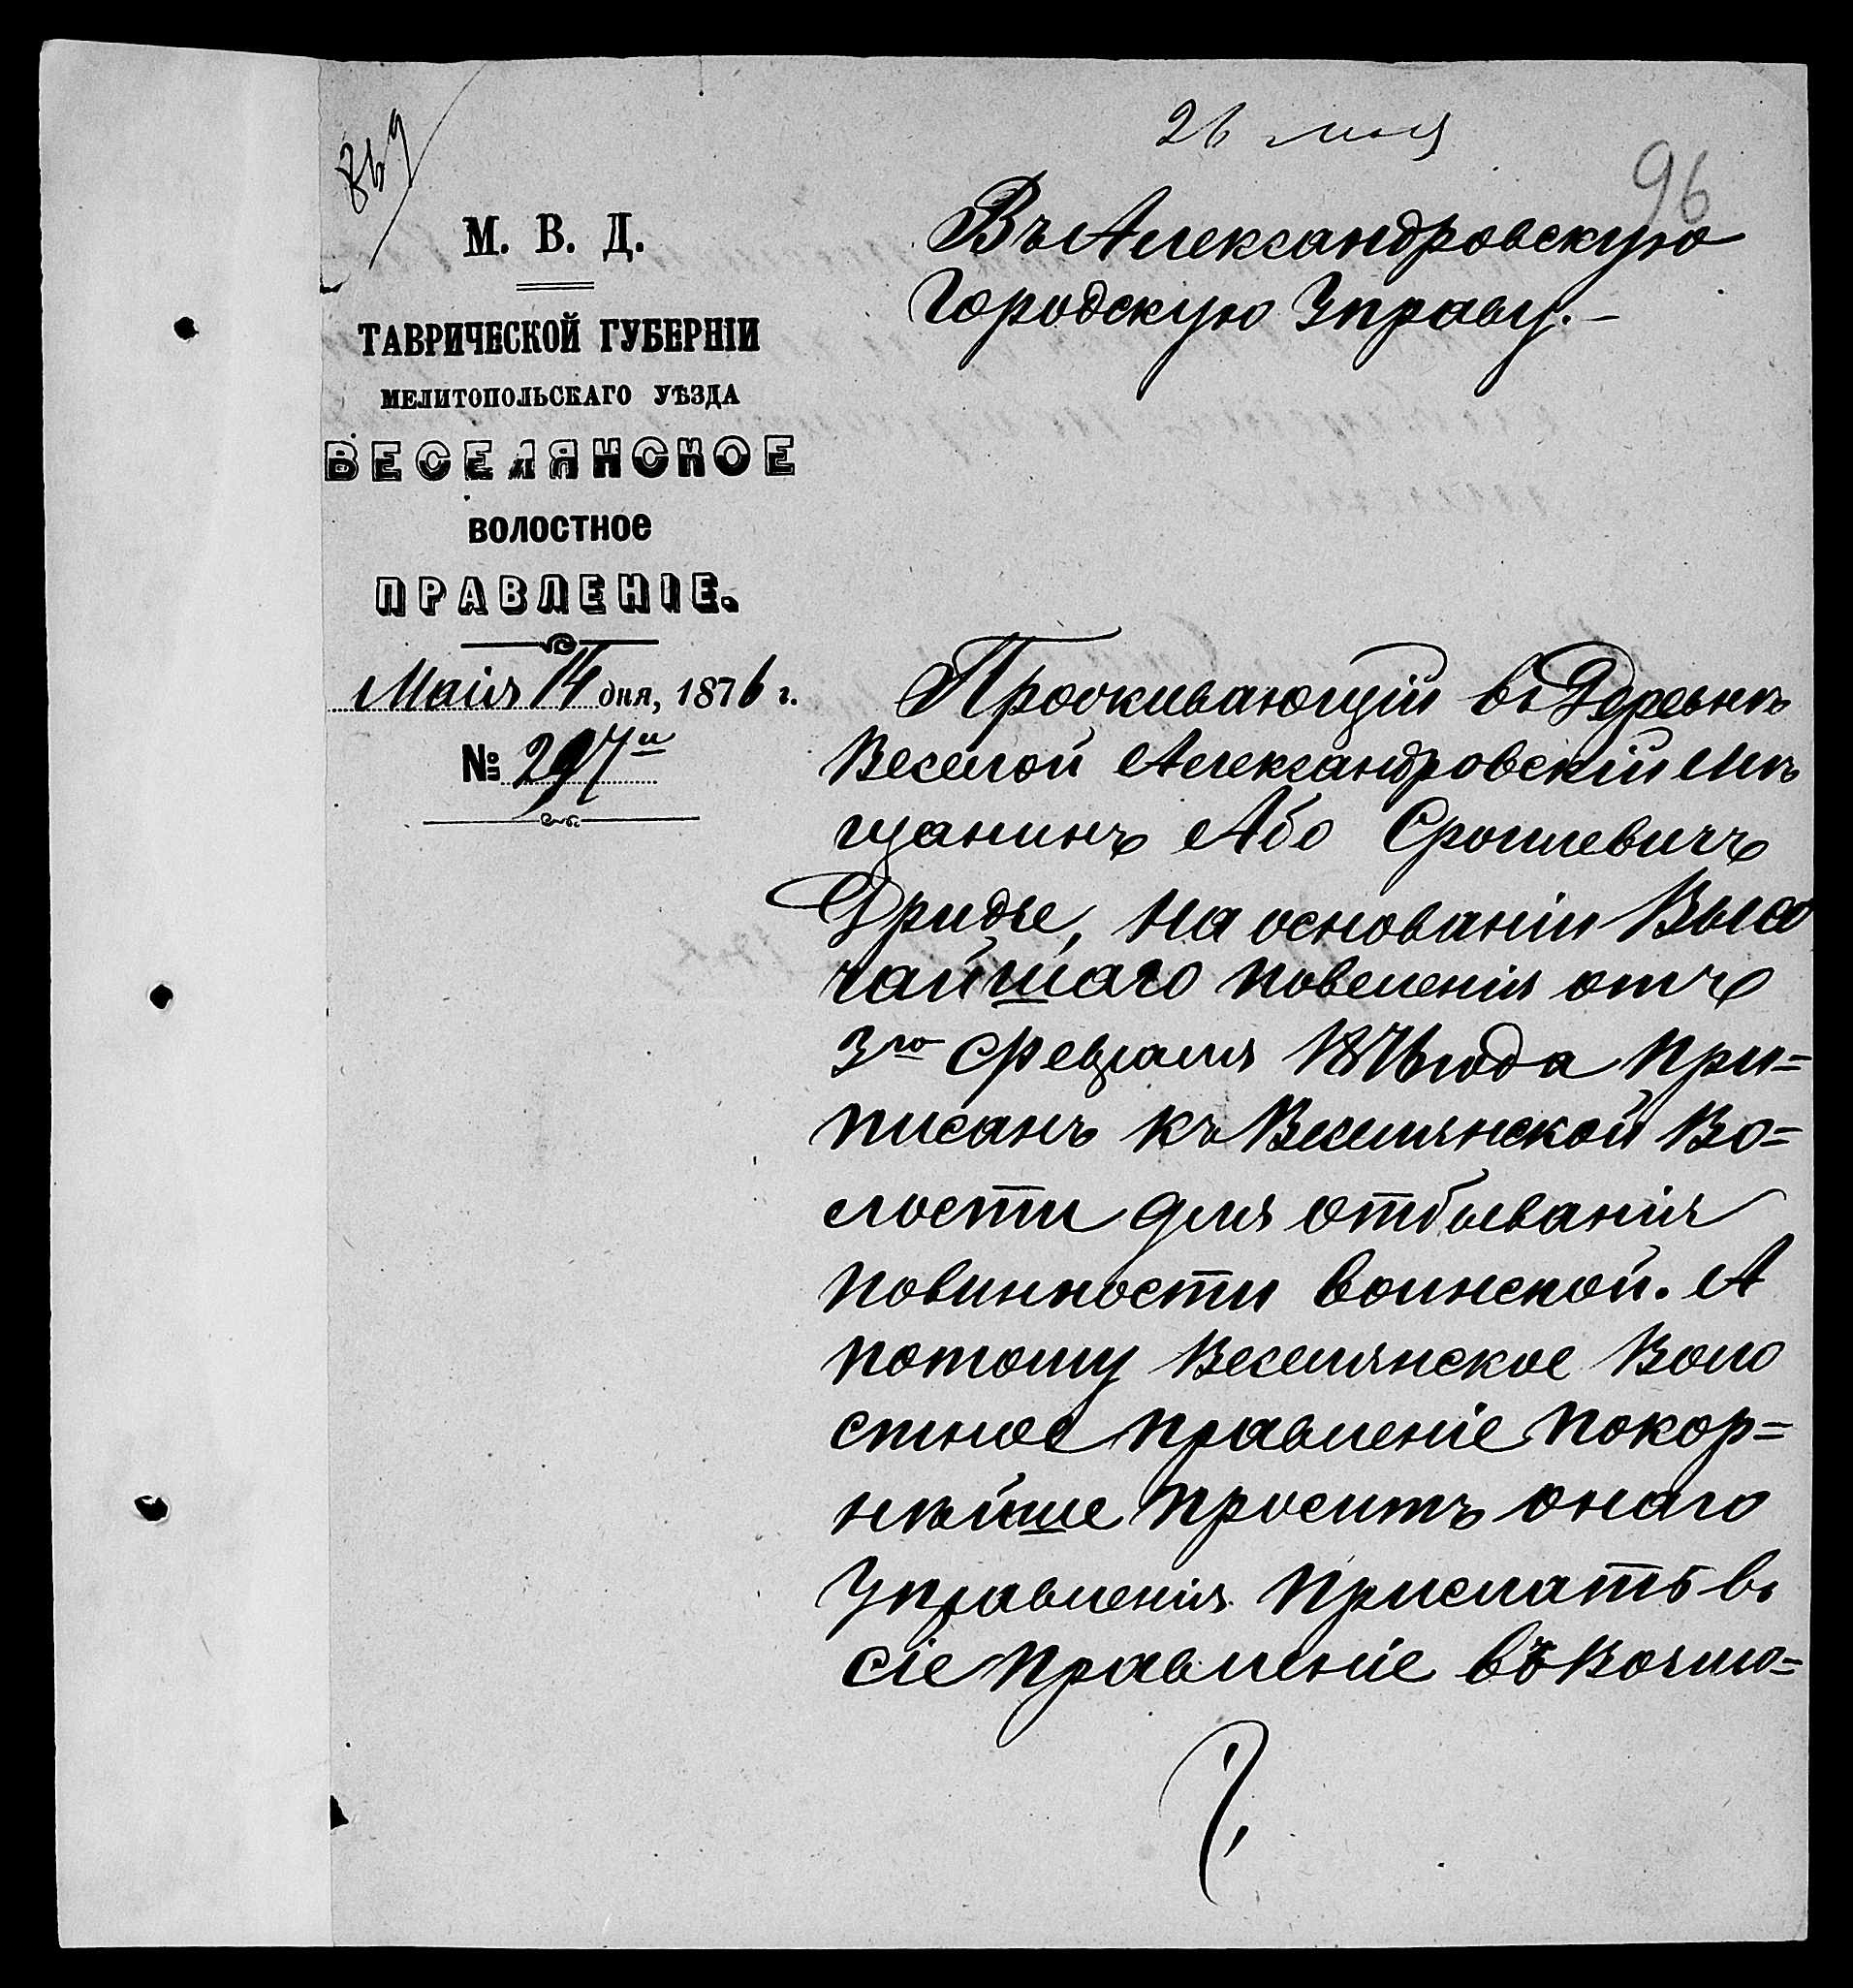 869
26 мая
96
М. В. Д.
ТАВРИЧЕСКОЙ ГУБЕРНІИ
МЕЛИТОПОЛЬСКАГО УѢЗДА
ВЕСЕЛЯНСКОЕ
ВОЛОСТНОЕ
ПРАВЛЕНІЕ.
Маія 14 дня, 1876 г.
№ 297
Въ Александровскую
Городскую Управу.-
Проживающій въ Деревнѣ
Веселой Александровскій мѣ
щанинъ Або Срошевичъ
на основаніи Высо
чайшаго повеленія отъ
3го февраля 1876 года при=
писанъ къ Веселянской Во=
лости для отбыванія
повинности воинской. А
потому Веселянское Воло
стное правленіе покор=
нѣйше проситъ онаго
Управленія прислать въ
сіе правленіе въ